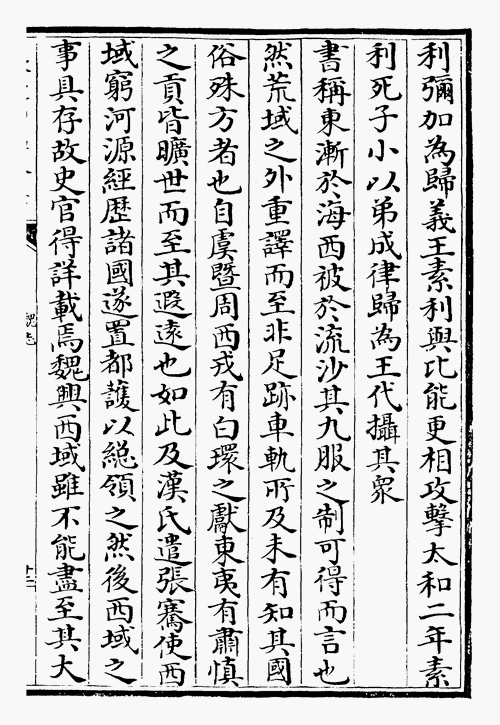 利彌加為歸義王素利與比能更相攻擊太和二年素
利死子小以弟成律歸為王代攝其衆
書稱東漸於海西被於流沙其九服之制可得而言也
然荒域之外重譯而至非足跡車軌所及未有知其國
俗殊方者也自虞暨周西戎有白環之獻東夷有肅慎
之貢皆曠世而至其遐遠也如此及漢氏遣張騫使西
域窮河源經歷諸國遂置都護以總領之然後西域之
事具存故史官得詳載焉魏興西域雖不能盡至其大